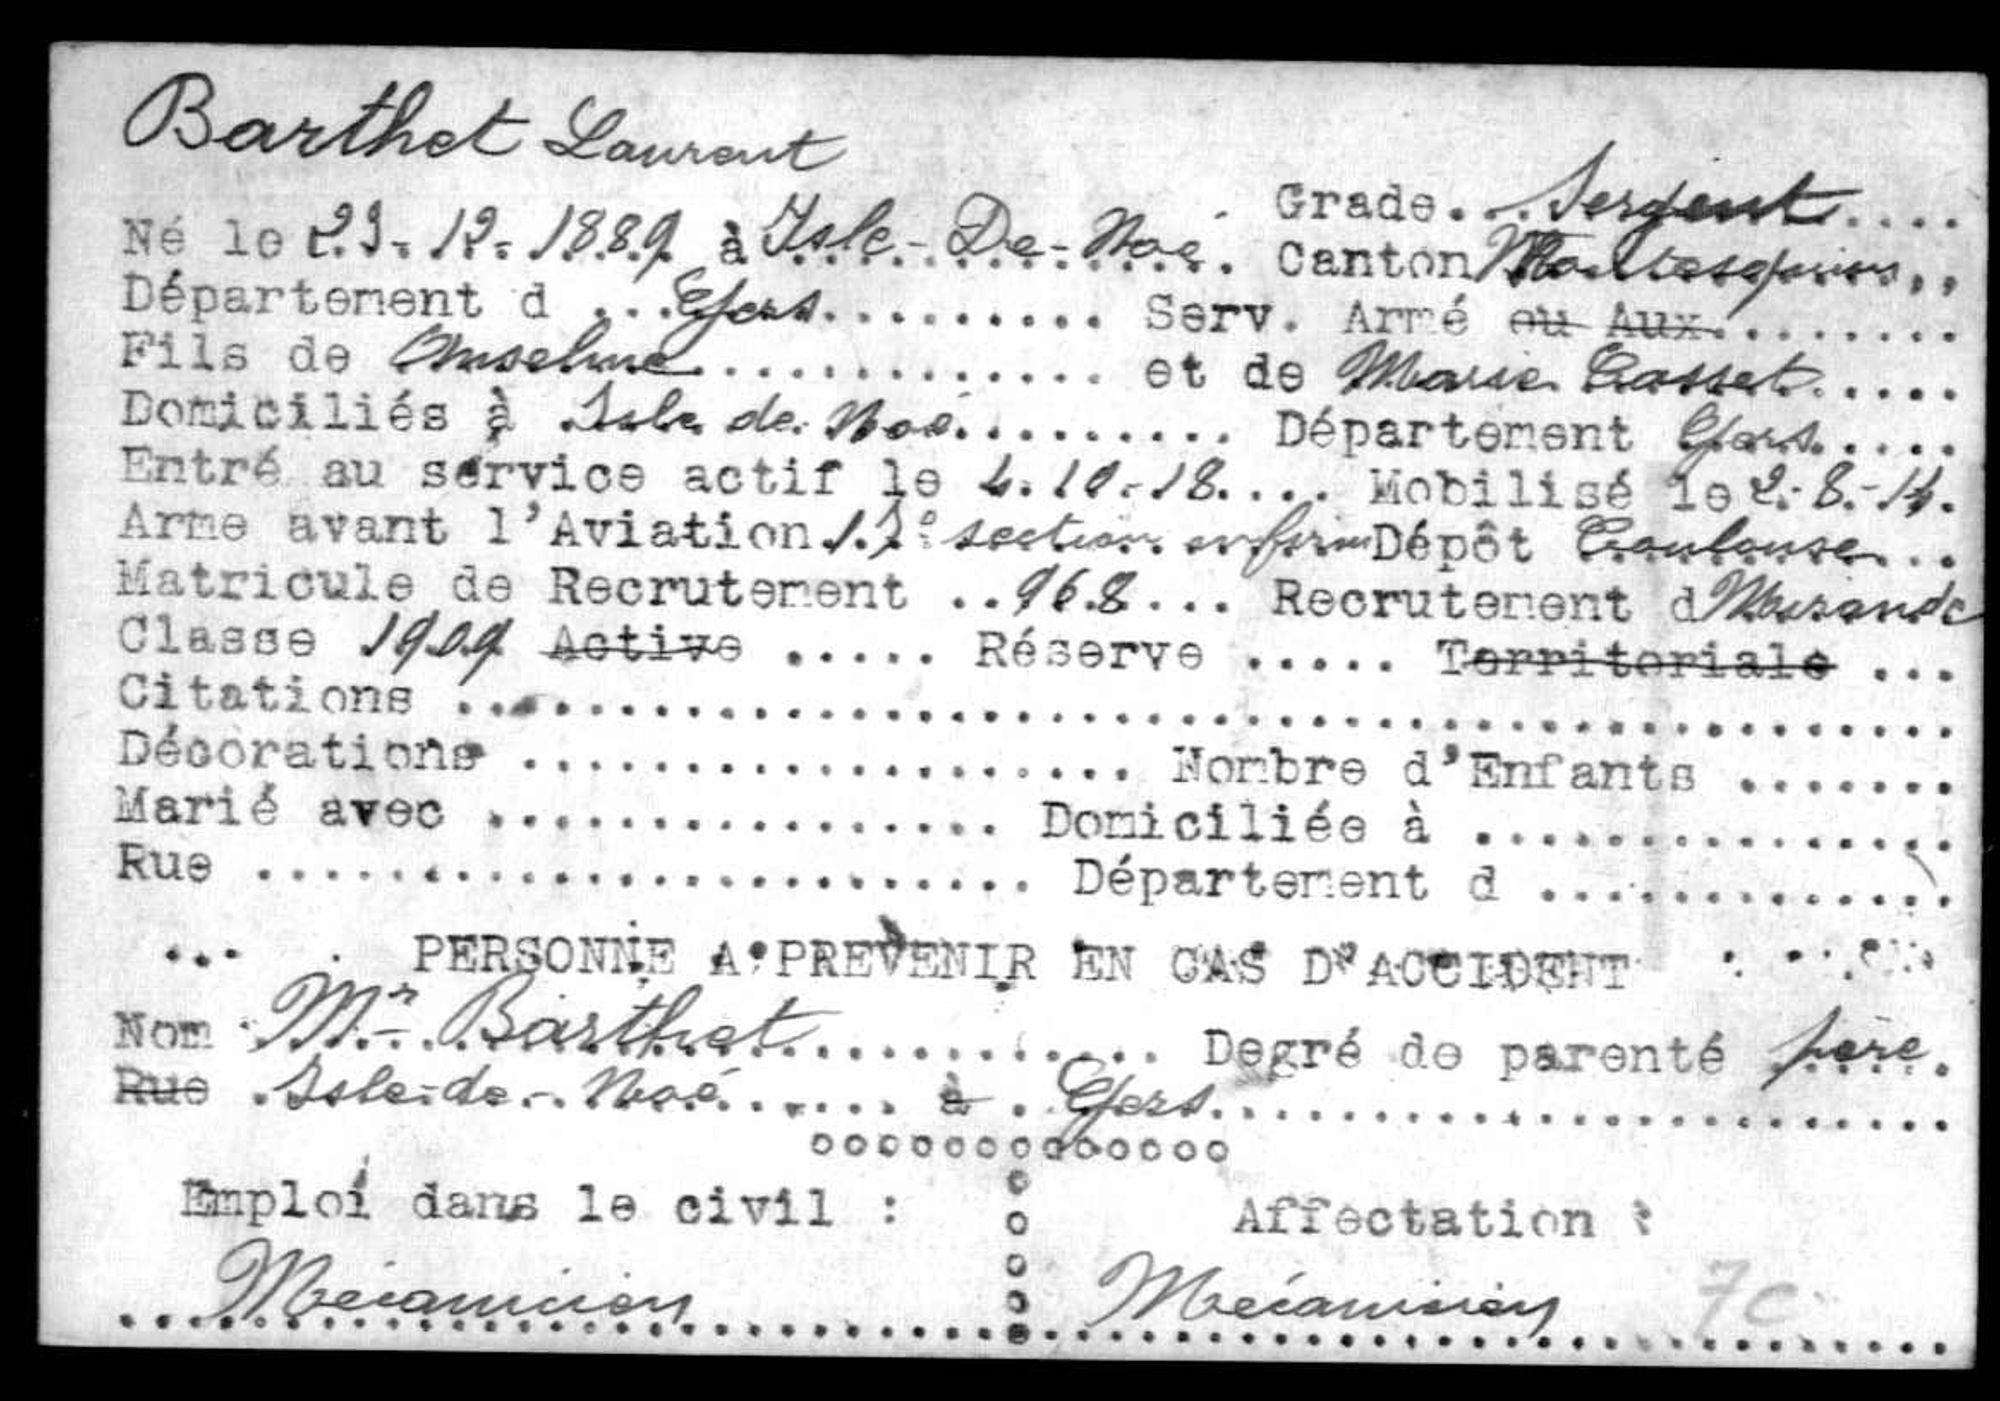 Barthet Laurent
Grade... Sergent....
Né le 29.12.1889 à Isle-De-Noé. Canton Montesquiou..
Département d ...Gers......... Serv. Armé ou Aux........
Fils de Anselme............. et de Marie Casset.....
Domiciliés à Isle de Noé......... Département Gers.....
Entré au service actif le 4.10.18.... Mobilisé le 2-8-14.
Arme avant l'Aviation 17e section infirm Dépôt Toulouse...
Matricule de Recrutement ..968... Recrutement d Mirande
Classe 1909 Active ..... Réserve ..... Territoriale ...
Citations ..............................................
Décorations ................... Nombre d'Enfants .......
Marié avec ................ Domiciliée à ...............
Rue ........................ Département d .............
PERSONNE A PREVENIR EN CAS D'ACCIDENT
Nom Mr Barthet............ Degré de parenté père.
Rue .Isle-de-Noé...... à . Gers.......................
ooooooooooooo
Emploi dans le civil :
Affectation :
Mécanicien
Mécanicien 7C